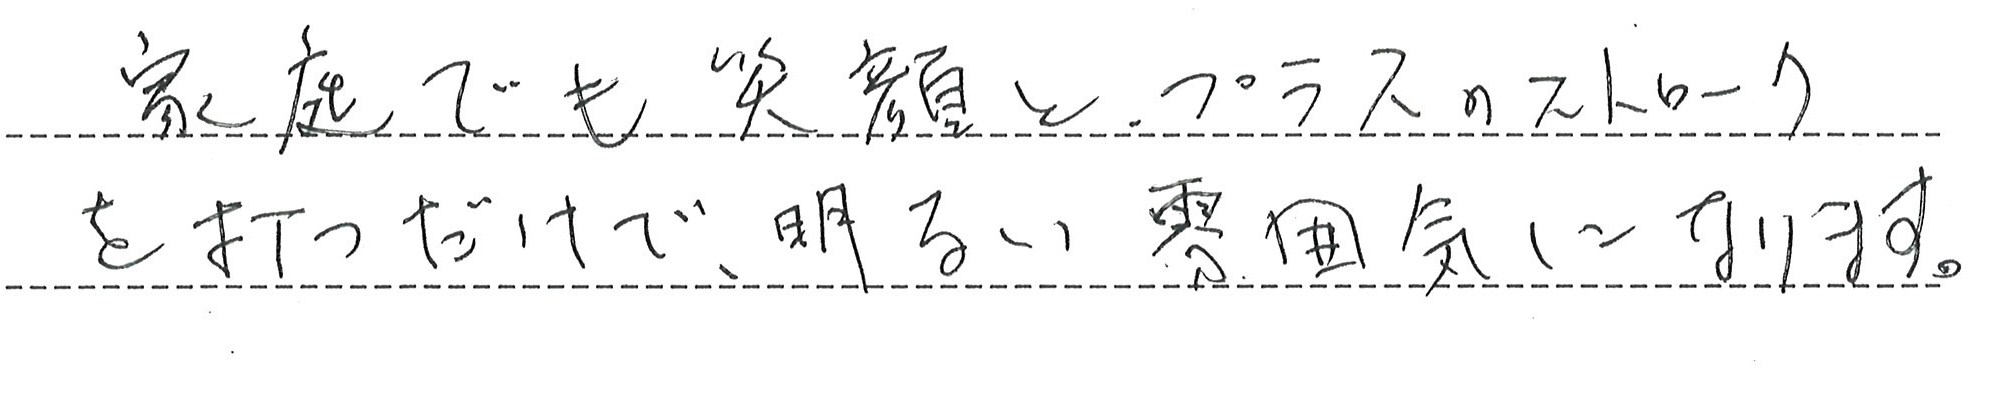 家庭でも笑顔と、プラスのストローク
を打つだけで、明るい雰囲気になります。